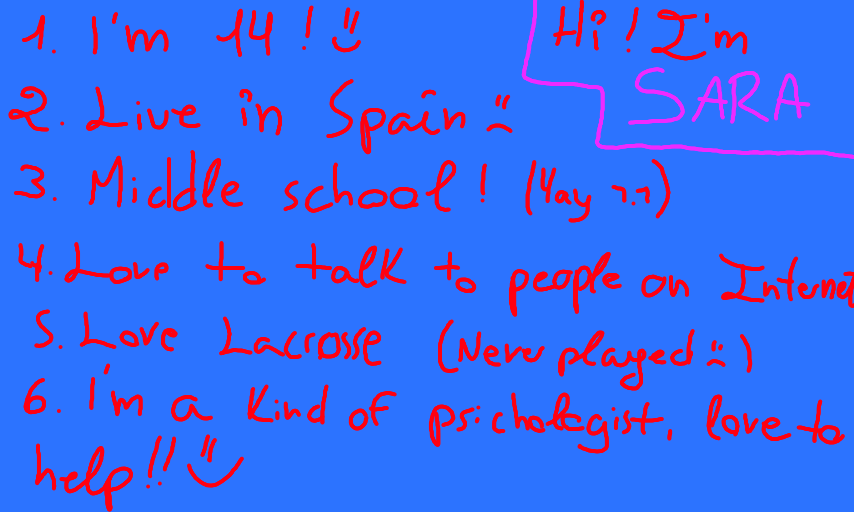 Hi! I'm
SARA
1. I'm 14! :)
2. Live in Spain :(
3. Middle school! (Yay ¬.¬)
4. Love to talk to people on Internet
5. Love Lacrosse (Never played :()
6. I'm a kind of psichologist, love to
help!! :)